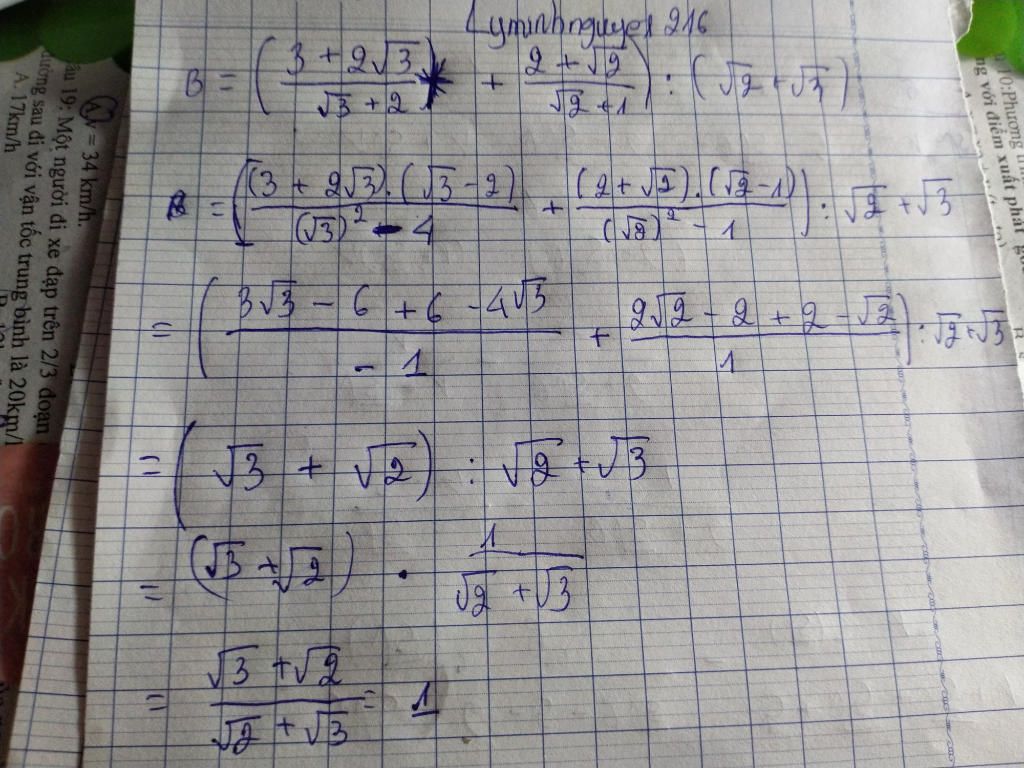 Lyminhnguyet 216
B = ( (3 + 2√3)/(√3 + 2) + (2 + √2)/(√2 + 1) ) : ( √2 + √3 )
B = ( ((3 + 2√3).(√3 - 2))/((√3)² - 4) + ((2 + √2).(√2 - 1))/((√2)² - 1) ) : √2 + √3
= ( (3√3 - 6 + 6 - 4√3)/(- 1) + (2√2 - 2 + 2 - √2)/1 ) : √2 + √3
= ( √3 + √2 ) : √2 + √3
= (√3 + √2) . 1/(√2 + √3)
= (√3 + √2)/(√2 + √3) = 1
= 34 km/h.
âu 19: Một người đi xe đạp trên 2/3 đoạn
đường sau đi với vận tốc trung bình là 20km/
A. 17km/h
10:Phương
với điểm xuất phát